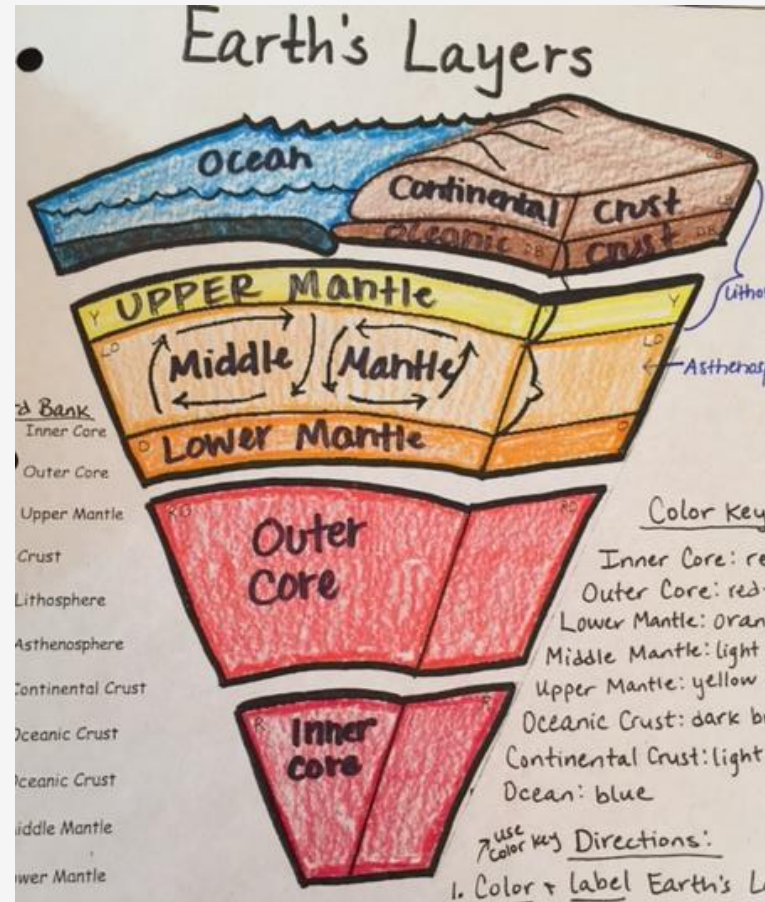 Earth's Layers
Ocean
Continental Crust
Oceanic Crust
UPPER Mantle
Middle Mantle
Lower Mantle
Outer
Core
Inner
core
Bank
Inner Core
Outer Core
Upper Mantle
Crust
Lithosphere
Asthenosphere
Continental Crust
Oceanic Crust
Oceanic Crust
Middle Mantle
Mantle
Color Key
Inner Core:
Outer Core: red-
Lower Mantle:
Middle Mantle: light
Upper Mantle: yellow
Oceanic Crust: dark
Continental Crust: light
Ocean: blue
use
color key Directions:
1. Color + label Earth's
Y
Y
LO
LO
O
O
RO
RO
R
R
DB
DB
LB